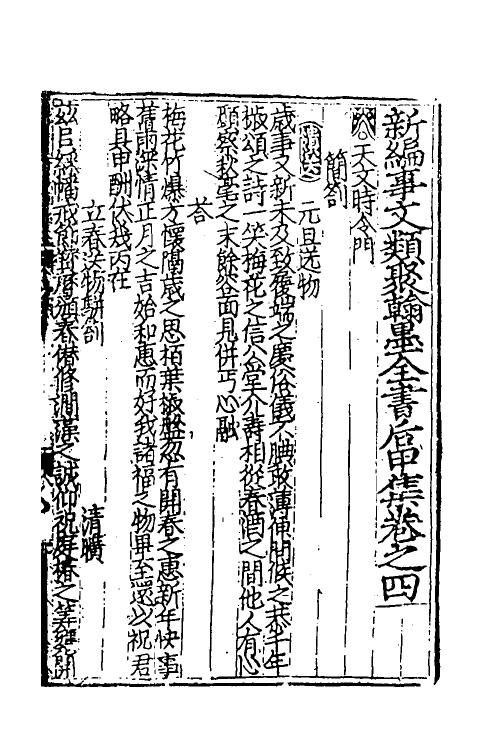 新編事文類聚翰墨全書后甲集卷之四
天文時令門
簡劄
元旦送物
歲事又新未及致履端之慶俗儀不腆敢薄伸明候之恭千年
椒頌之詩一笑梅花之信公堂介壽相從春酒之間他人有心
願察秋毫之末餘容面見併丐心融
荅
梅花竹爆方懷隔歲之思栢葉椒盤忽有開春之惠新年快事
舊雨深情正月之吉始和惠而好我諸福之物畢至還以祝君
略具申酬伏幾丙在
立春送物駢劄 清曠
茲臣綵幡戒節鞭鸞頒春僃修澗藻之誠仰祝庭椿之筭